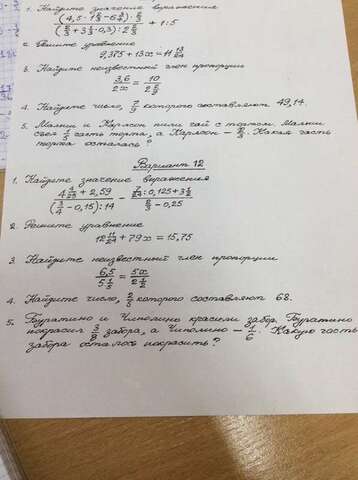 1. Найдите значение выражения
2. Решите уравнение
9,375 + 13x = 11 13/24
3. Найдите неизвестный член пропорции
3,6/2x = 10/
4. Найдите число, которого составляют 49,14.
5. Малыш и Карлсон пили чай с тортом. Малыш
съел 1/5 часть торта, а Карлсон – Какая часть
торта осталась?
Вариант 12
1. Найдите значение выражения
+ 2,59 / (3/4 – 0,15) : 14 – 7/24 : 0,125 + 3 1/2 / 2/3 – 0,25
2. Решите уравнение
12 11/24 + 79x = 15,75
3 Найдите неизвестный член пропорции
6,5/5 1/5 = 5x/2 1/2
4. Найдите число, 2/3 которого составляют 68.
5. Буратино и Чиполино красили забор. Буратино
покрасил 3/8 забора, а Чиполино – 1/6. Какую часть
забора осталось покрасить?